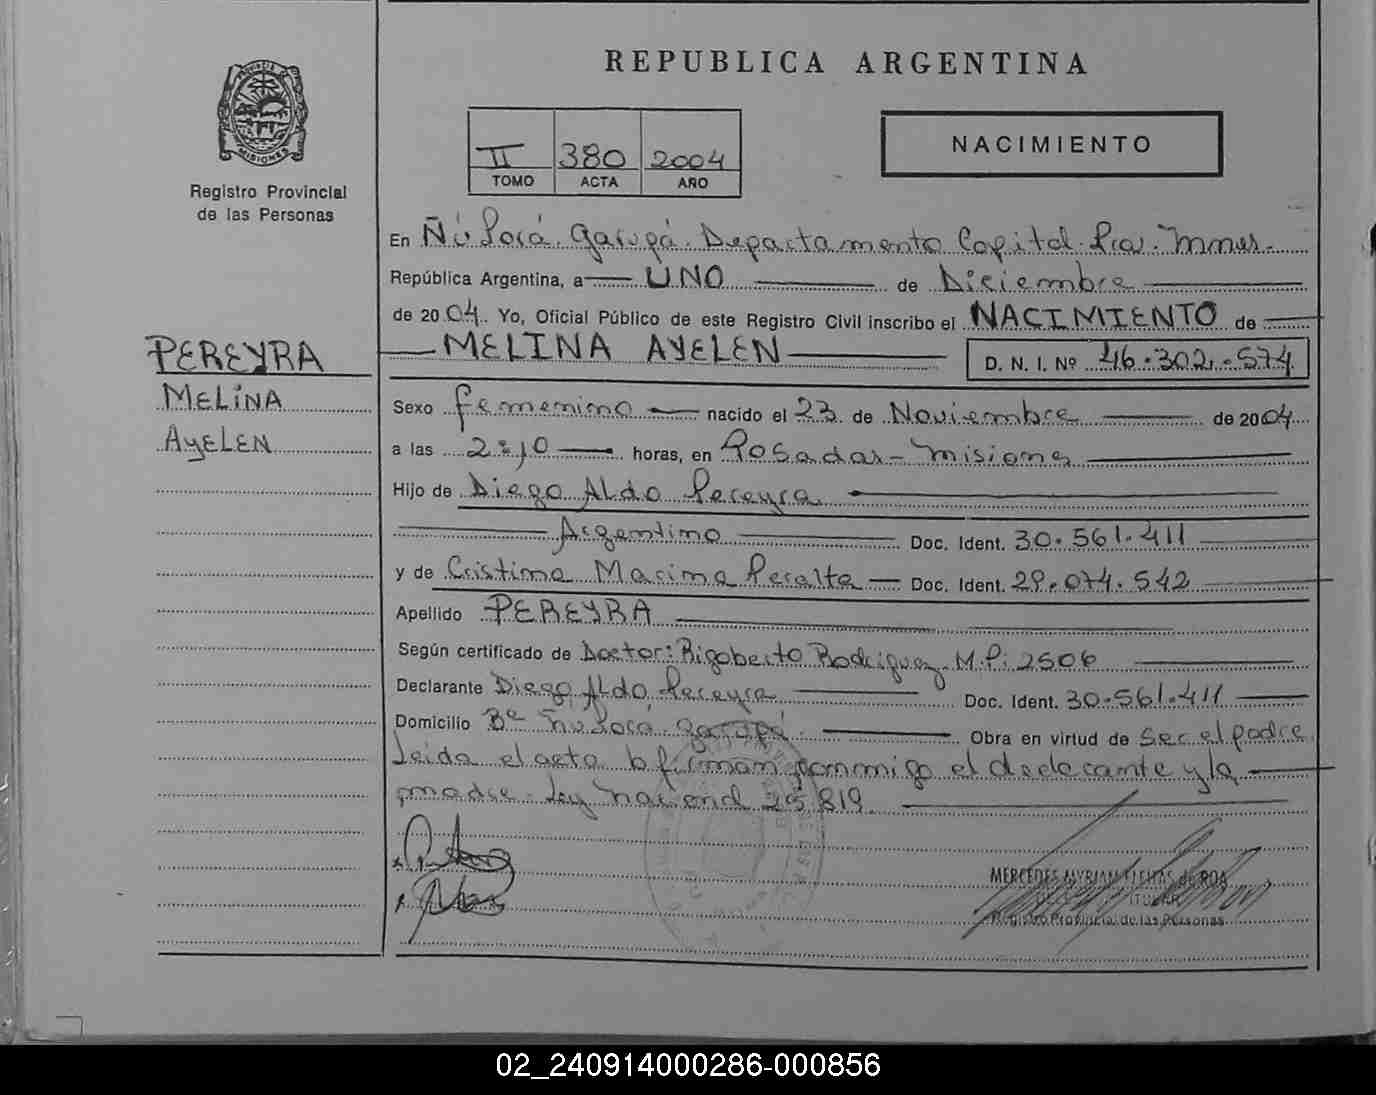 REPUBLICA ARGENTINA
PROVINCIA DE MISIONES
Registro Provincial
de las Personas
II 380 2004
TOMO ACTA AÑO
NACIMIENTO
En Ñú Porá. Garupá. Departamento Capital. Pcia. Mnes.
República Argentina, a UNO de Diciembre
de 2004. Yo, Oficial Público de este Registro Civil inscribo el NACIMIENTO de
MELINA AYELEN D. N. I. Nº 46.302.574
PEREYRA
MELINA
AYELEN
Sexo femenino nacido el 23 de Noviembre de 2004
a las 2:10 horas, en Posadas - Misiones
Hijo de Diego Aldo Pereyra
Argentino Doc. Ident. 30.561.411
y de Cristina Marina Peralta Doc. Ident. 29.074.542
Apellido PEREYRA
Según certificado de Doctor: Rigoberto Rodriguez. M.P: 2506
Declarante Diego Aldo Pereyra Doc. Ident. 30.561.411
Domicilio Bº Ñu Porá. Garupá. Obra en virtud de ser el padre.
Leida el acta la firman conmigo el declarante y la
madre. Ley Nacional 25.819.
MERCEDES MYRIAM FLEITAS de ROA
TITULAR
Registro Provincial de las Personas
02_240914000286-000856